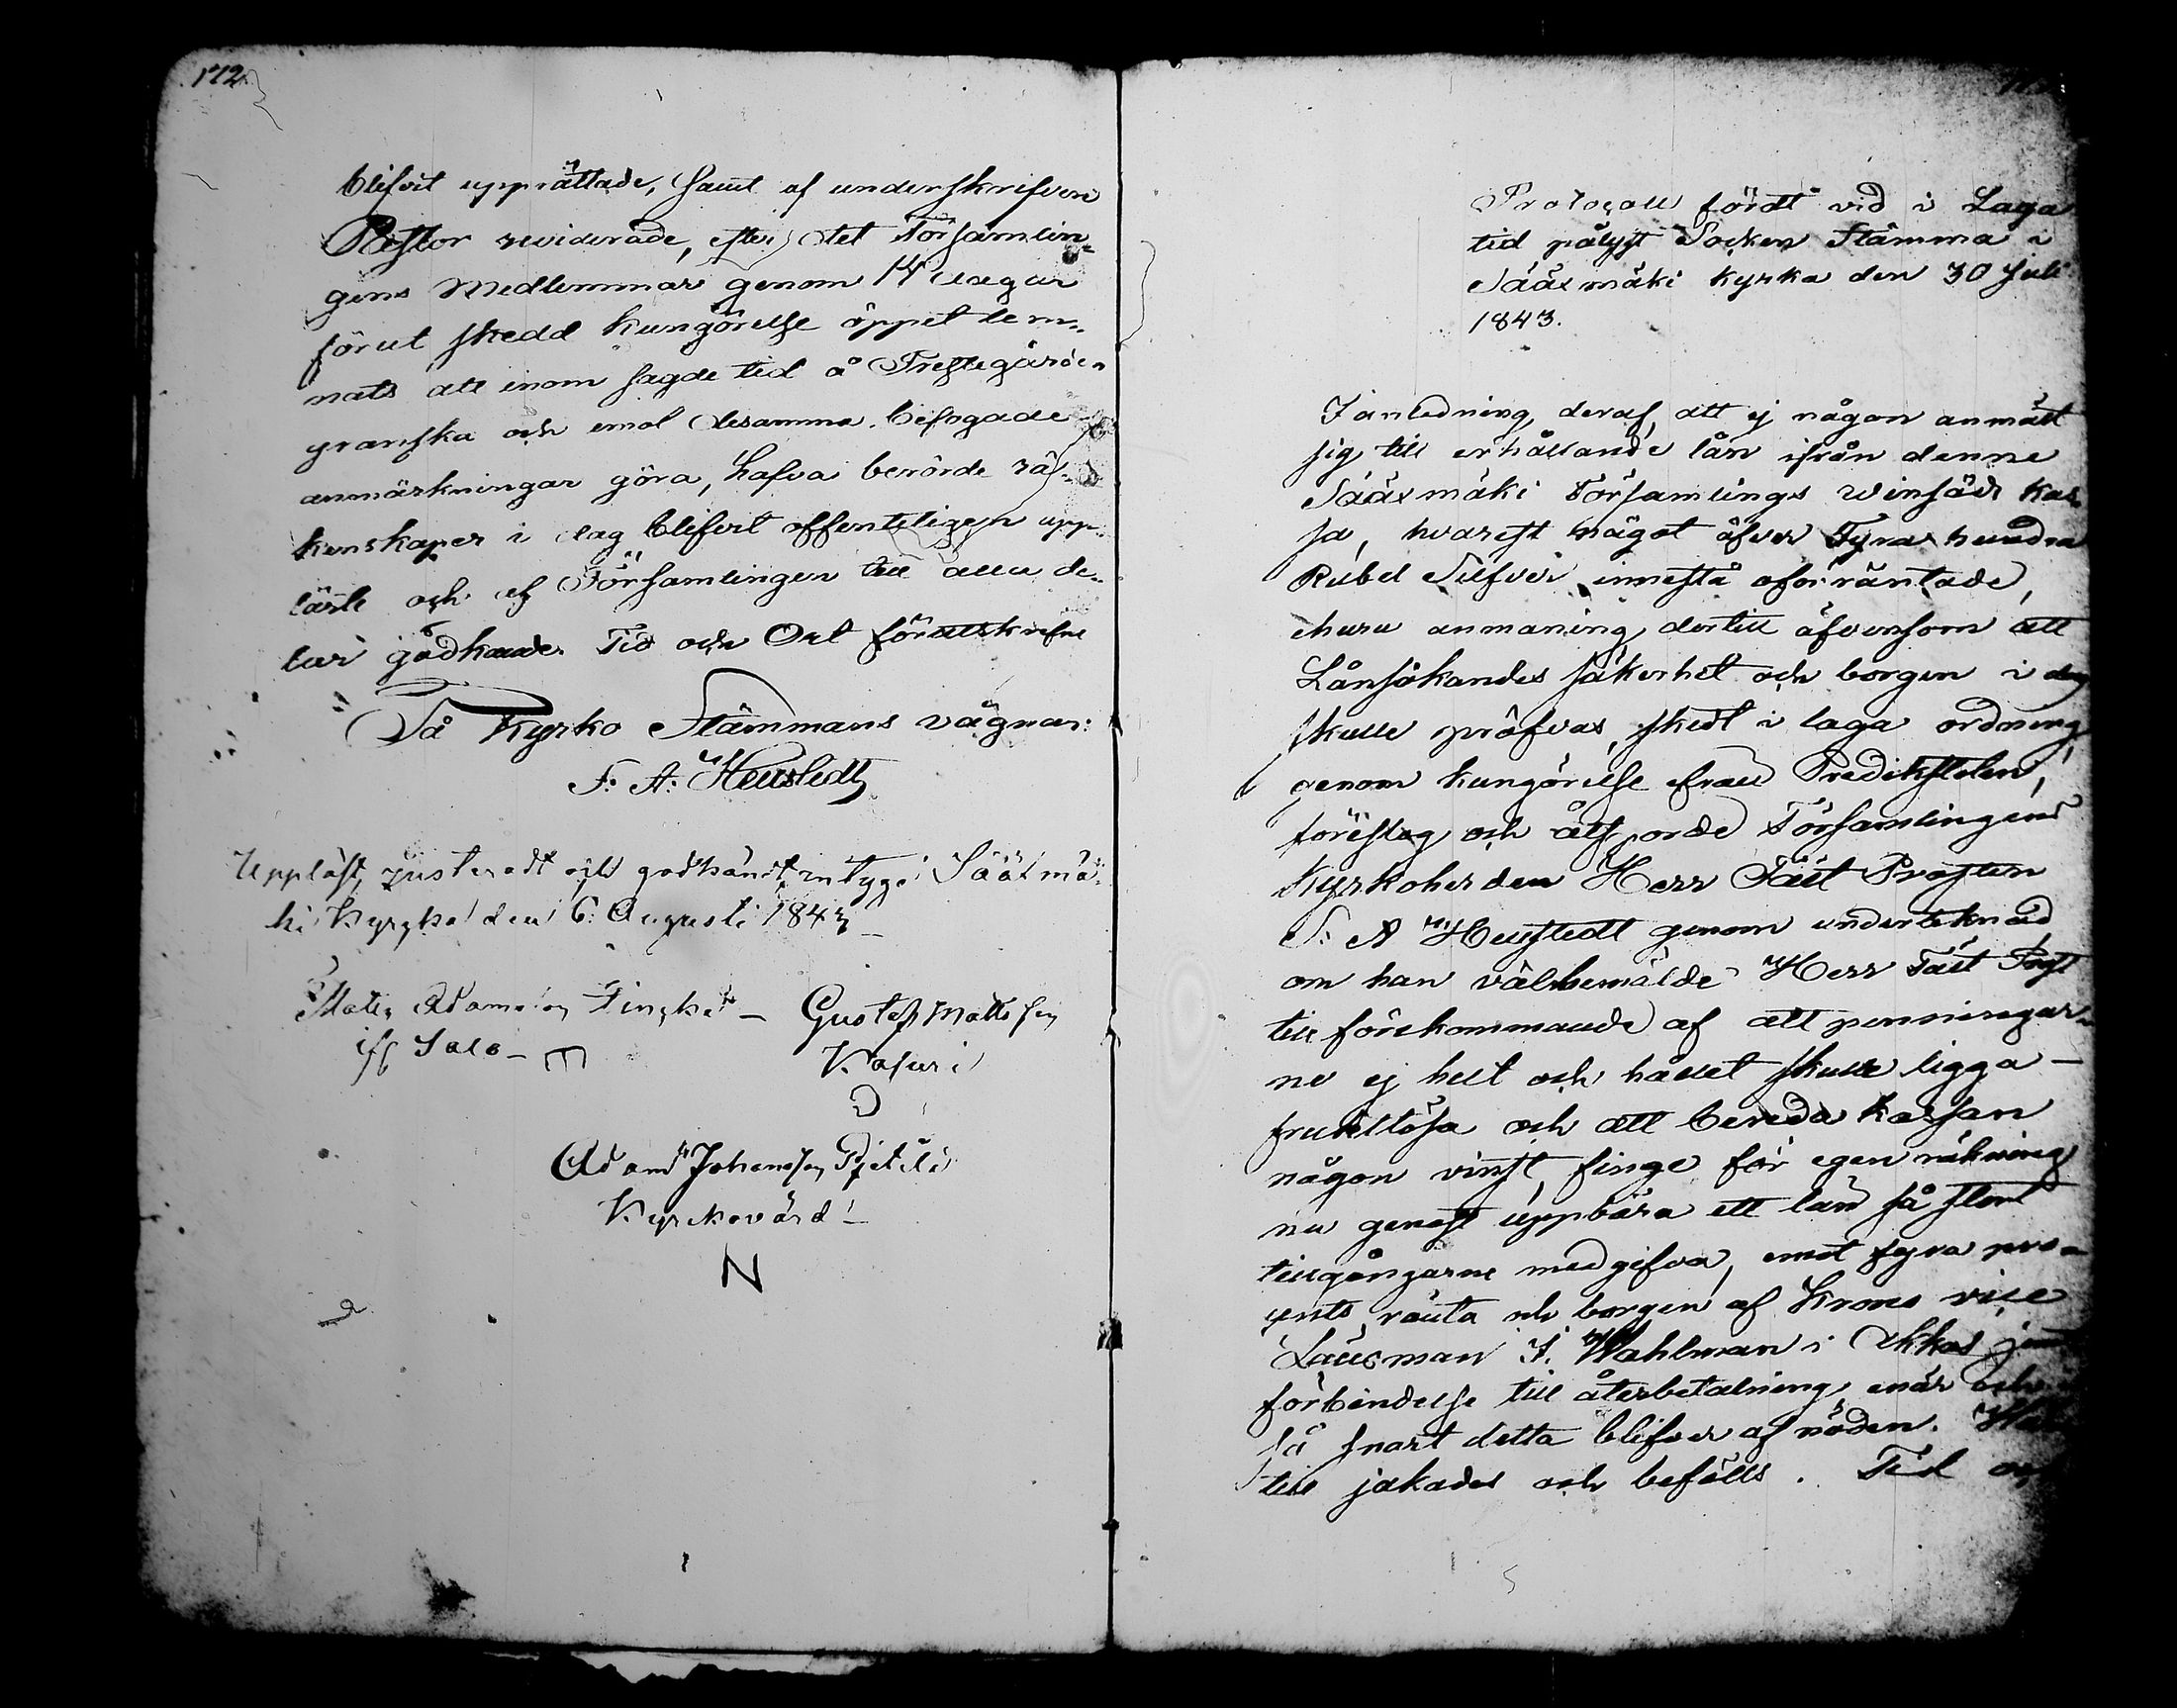 172.
blifvit upprättade, samt af underskrifven
Pastor reviderade, efter det Församlin-
gens Medlemmar genom 14 dagar
förut skedd kungörelse öppet lem-
nats att inom sagde tid å Prestegården
granska och emot desamma befogade
anmärkningar göra, hafva berörde rä-
kenskaper i dag blifvit offenteligen upp-
läste och af Församlingen till alla de-
lar godkände. Tid och Ort förutskrefne
På Kyrko Stämmans vägnar:
F: A: Heurledt
Uppläst, justeradt och godkändt, intyga i Sääxmä-
ki Kyrka den 6. Augusti 1843 –
Matts Adamsson – Gustaf Mattsson
ifr Salo –
Adam Johansson
Kyrkovärd –
N
Protocoll fördt vid i Laga
tid pålyst Socken Stämma i
Sääxmäki Kyrka den 30 Juli
1843.
I anledning deraf, att ej någon anmält
sig till erhållande lån ifrån denne
Sääxmäki Församlings Kas-
sa, hvarest något öfver Fyra hundra
Rubel Silfver innestå oförräntade,
ehuru anmaning dertill äfvensom att
Lånsökandes säkerhet och borgen i dag
skulle pröfvas, skedt i laga ordning
genom kungörelse ifrån Predikstolen,
föreslog och Församlingens
Kyrkoherden Herr Prosten
F: A Heurstedt genom undertecknad
om han välbemälde Herr
till förekommande af att penningar-
ne ej helt och hållet skulle ligga –
fruktlösa och att bereda Kassan
någon vinst, finge för egen räkning
nu genast uppbära ett lån så stort
tillgångarne medgifva, emot fyra pro-
cents ränta och borgen af Krono vice
Länsman Wahlman i Akkas
förbindelse till återbetalning, enär och
så snart detta blifver af nöden.
till jakades och bifölls. Tid och